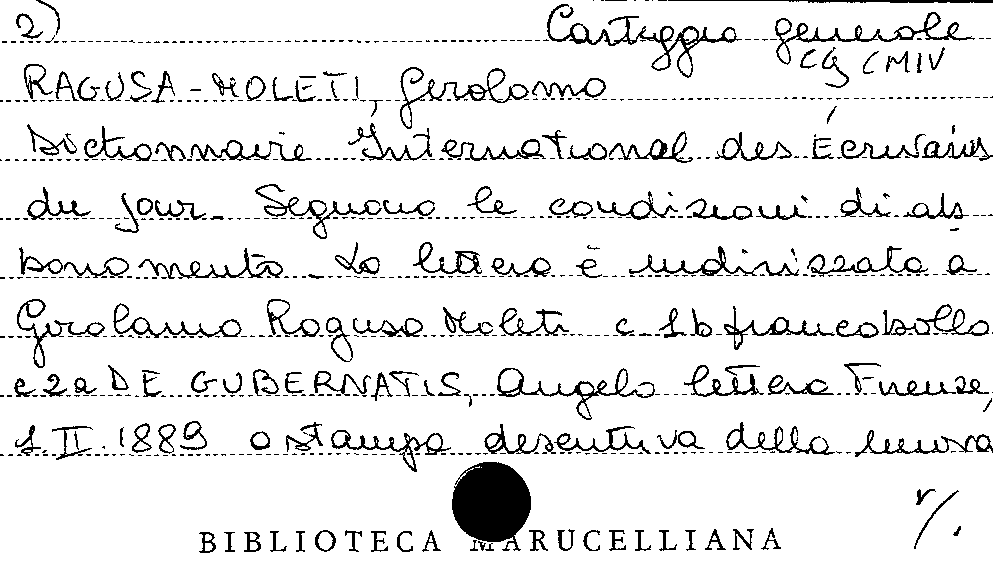 2) Carteggio generale
CG CMIV
RAGUSA-MOLETI, Gerolamo
Dictionnaire International des Écrivains
du jour. Seguono le condizioni di ab
bonamento. La lettera è indirizzata a
Girolamo Ragusa Moleti c. 1b francobollo
c 2a DE GUBERNATIS, Angelo lettera Firenze,
1.II.1889 a stampa descrittiva della nuova
v/.
BIBLIOTECA MARUCELLIANA